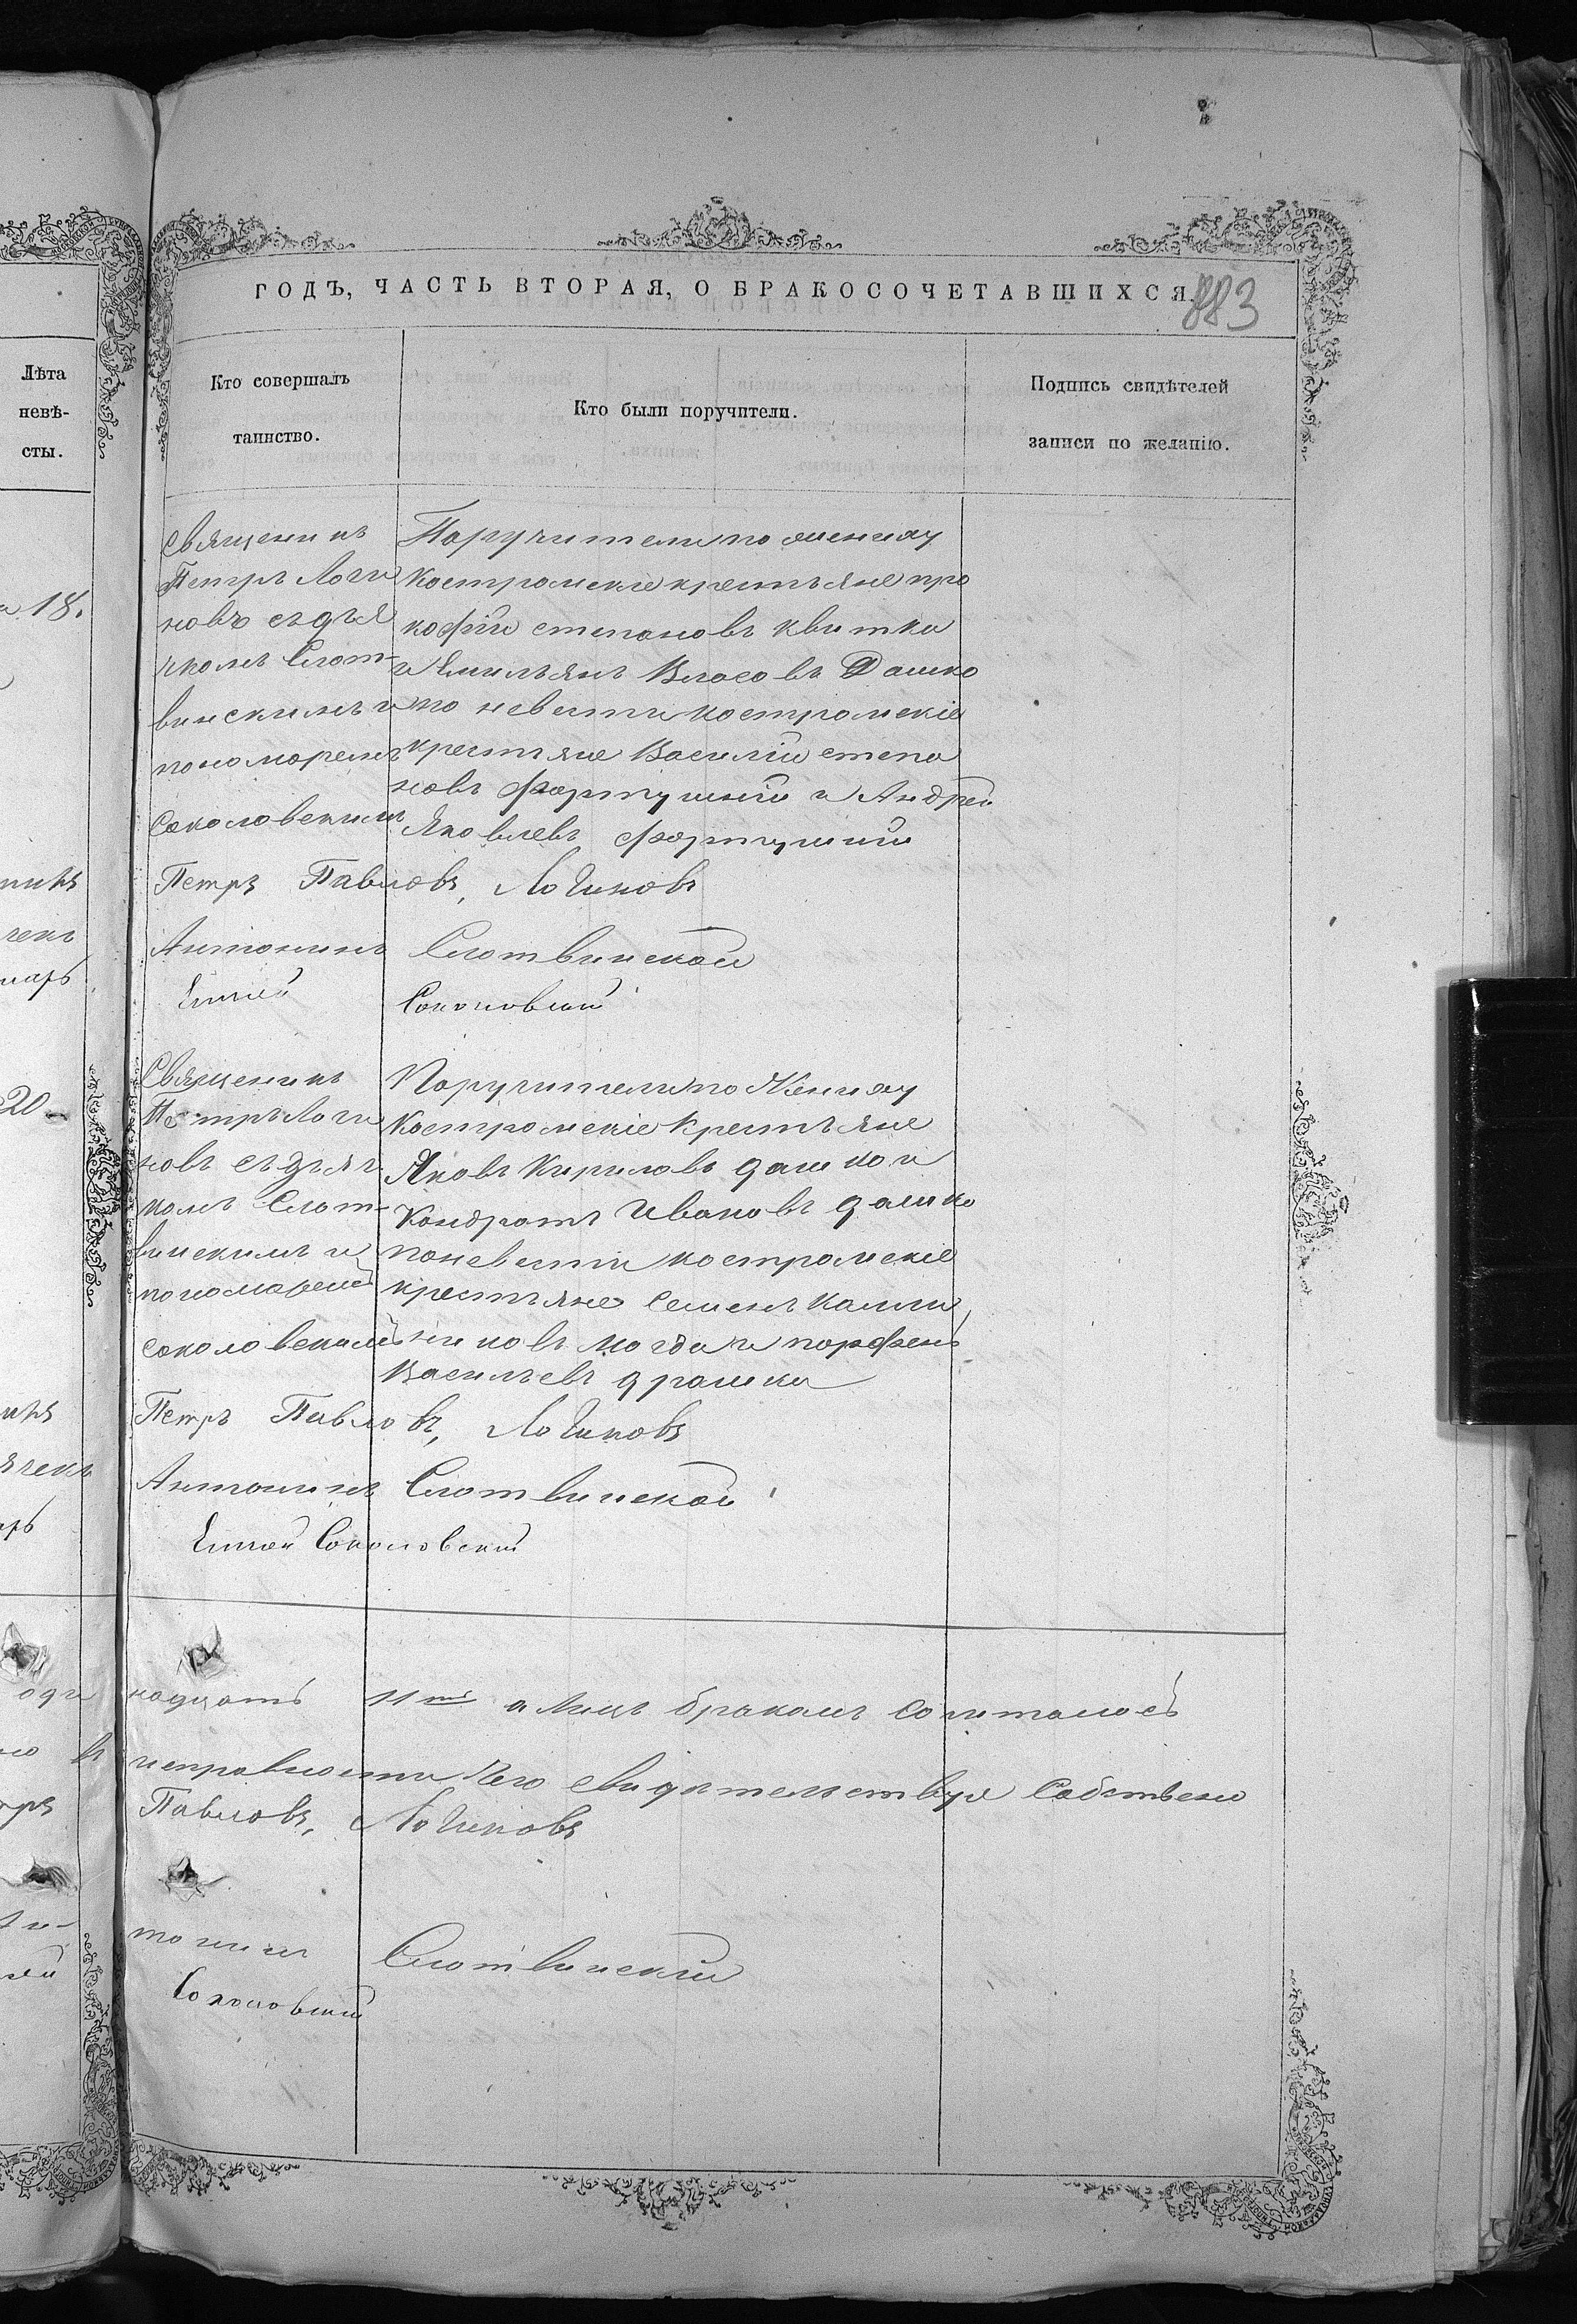 ГОДЪ, ЧАСТЬ ВТОРАЯ, О БРАКОСОЧЕТАВШИХСЯ.
883
Лѣта
невѣ-
сты.
Кто совершалъ
таинство.
Кто были поручители.
Подпись свидѣтелей
записи по желанію.
18.
Священикъ
Петръ Логи
новъ съ дья
чкомъ Слот-
винскимъ и
пономоремъ
Соколовскимъ
Поручители по жениху
Костромскіе крестьяне про
кофій степановъ квитка
и Емильянъ Власовъ Дашко
по невести костромскіе
крестьяне Василій степа
новъ Фортушній и Андрей
Яковлевъ Фортушній
Петръ Павловъ, Логиновъ
Антонинъ Слотвинской
Соколовский
20
Священикъ
Петръ Логи
новъ съ дьяч
комъ Слот-
винскимъ и
пономаремъ
соколовскимъ
Поручители по Жениху
Костромскіе Крестьяне
Яковъ Кириловъ дашко и
Кондратъ Ивановъ дашко
по невести костромскіе
крестьяне Семенъ Калли
никовъ могда и порфенъ
Васильевъ драшка
Петръ Павловъ, Логиновъ
Антонинъ Слотвинской
Соколовский
оди надцать 11ть а Лицъ бракомъ сочиталось
исправности чего свидетельствуя Собствено
Павловъ, Логиновъ
тонинъ Слотвинскій
Соколовский